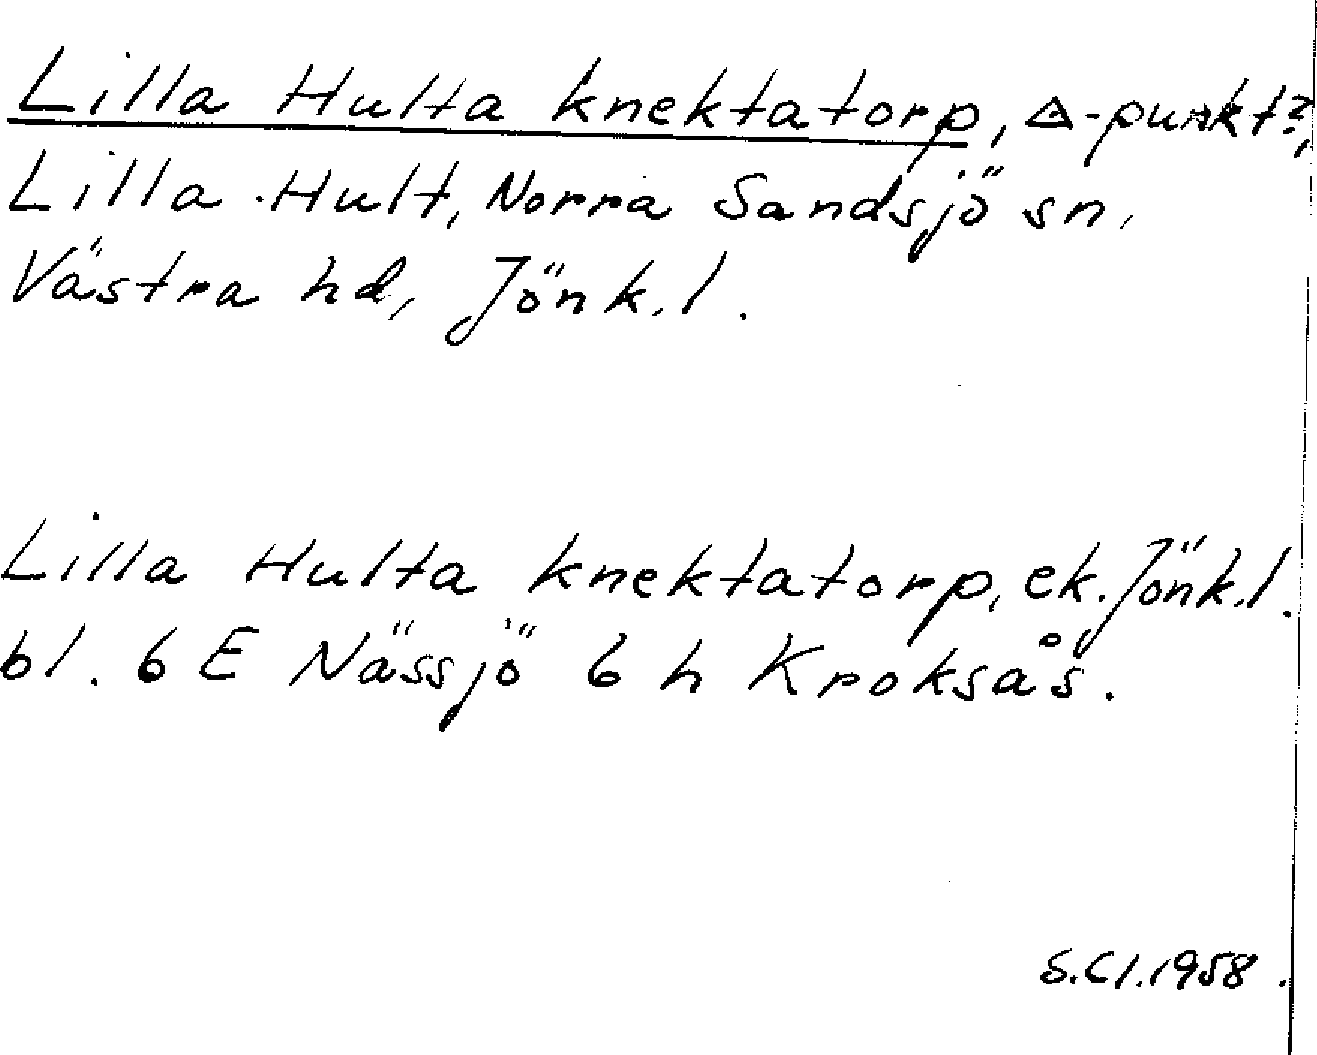 Lilla Hulta knektatorp, △-punkt?,
Lilla Hult, Norra Sandsjö sn,
Västra hd, Jönk.l.
Lilla Hulta knektatorp, ek. Jönk.l.
bl. 6 E Nässjö 6 h Kroksås.
S.Cl.1958.